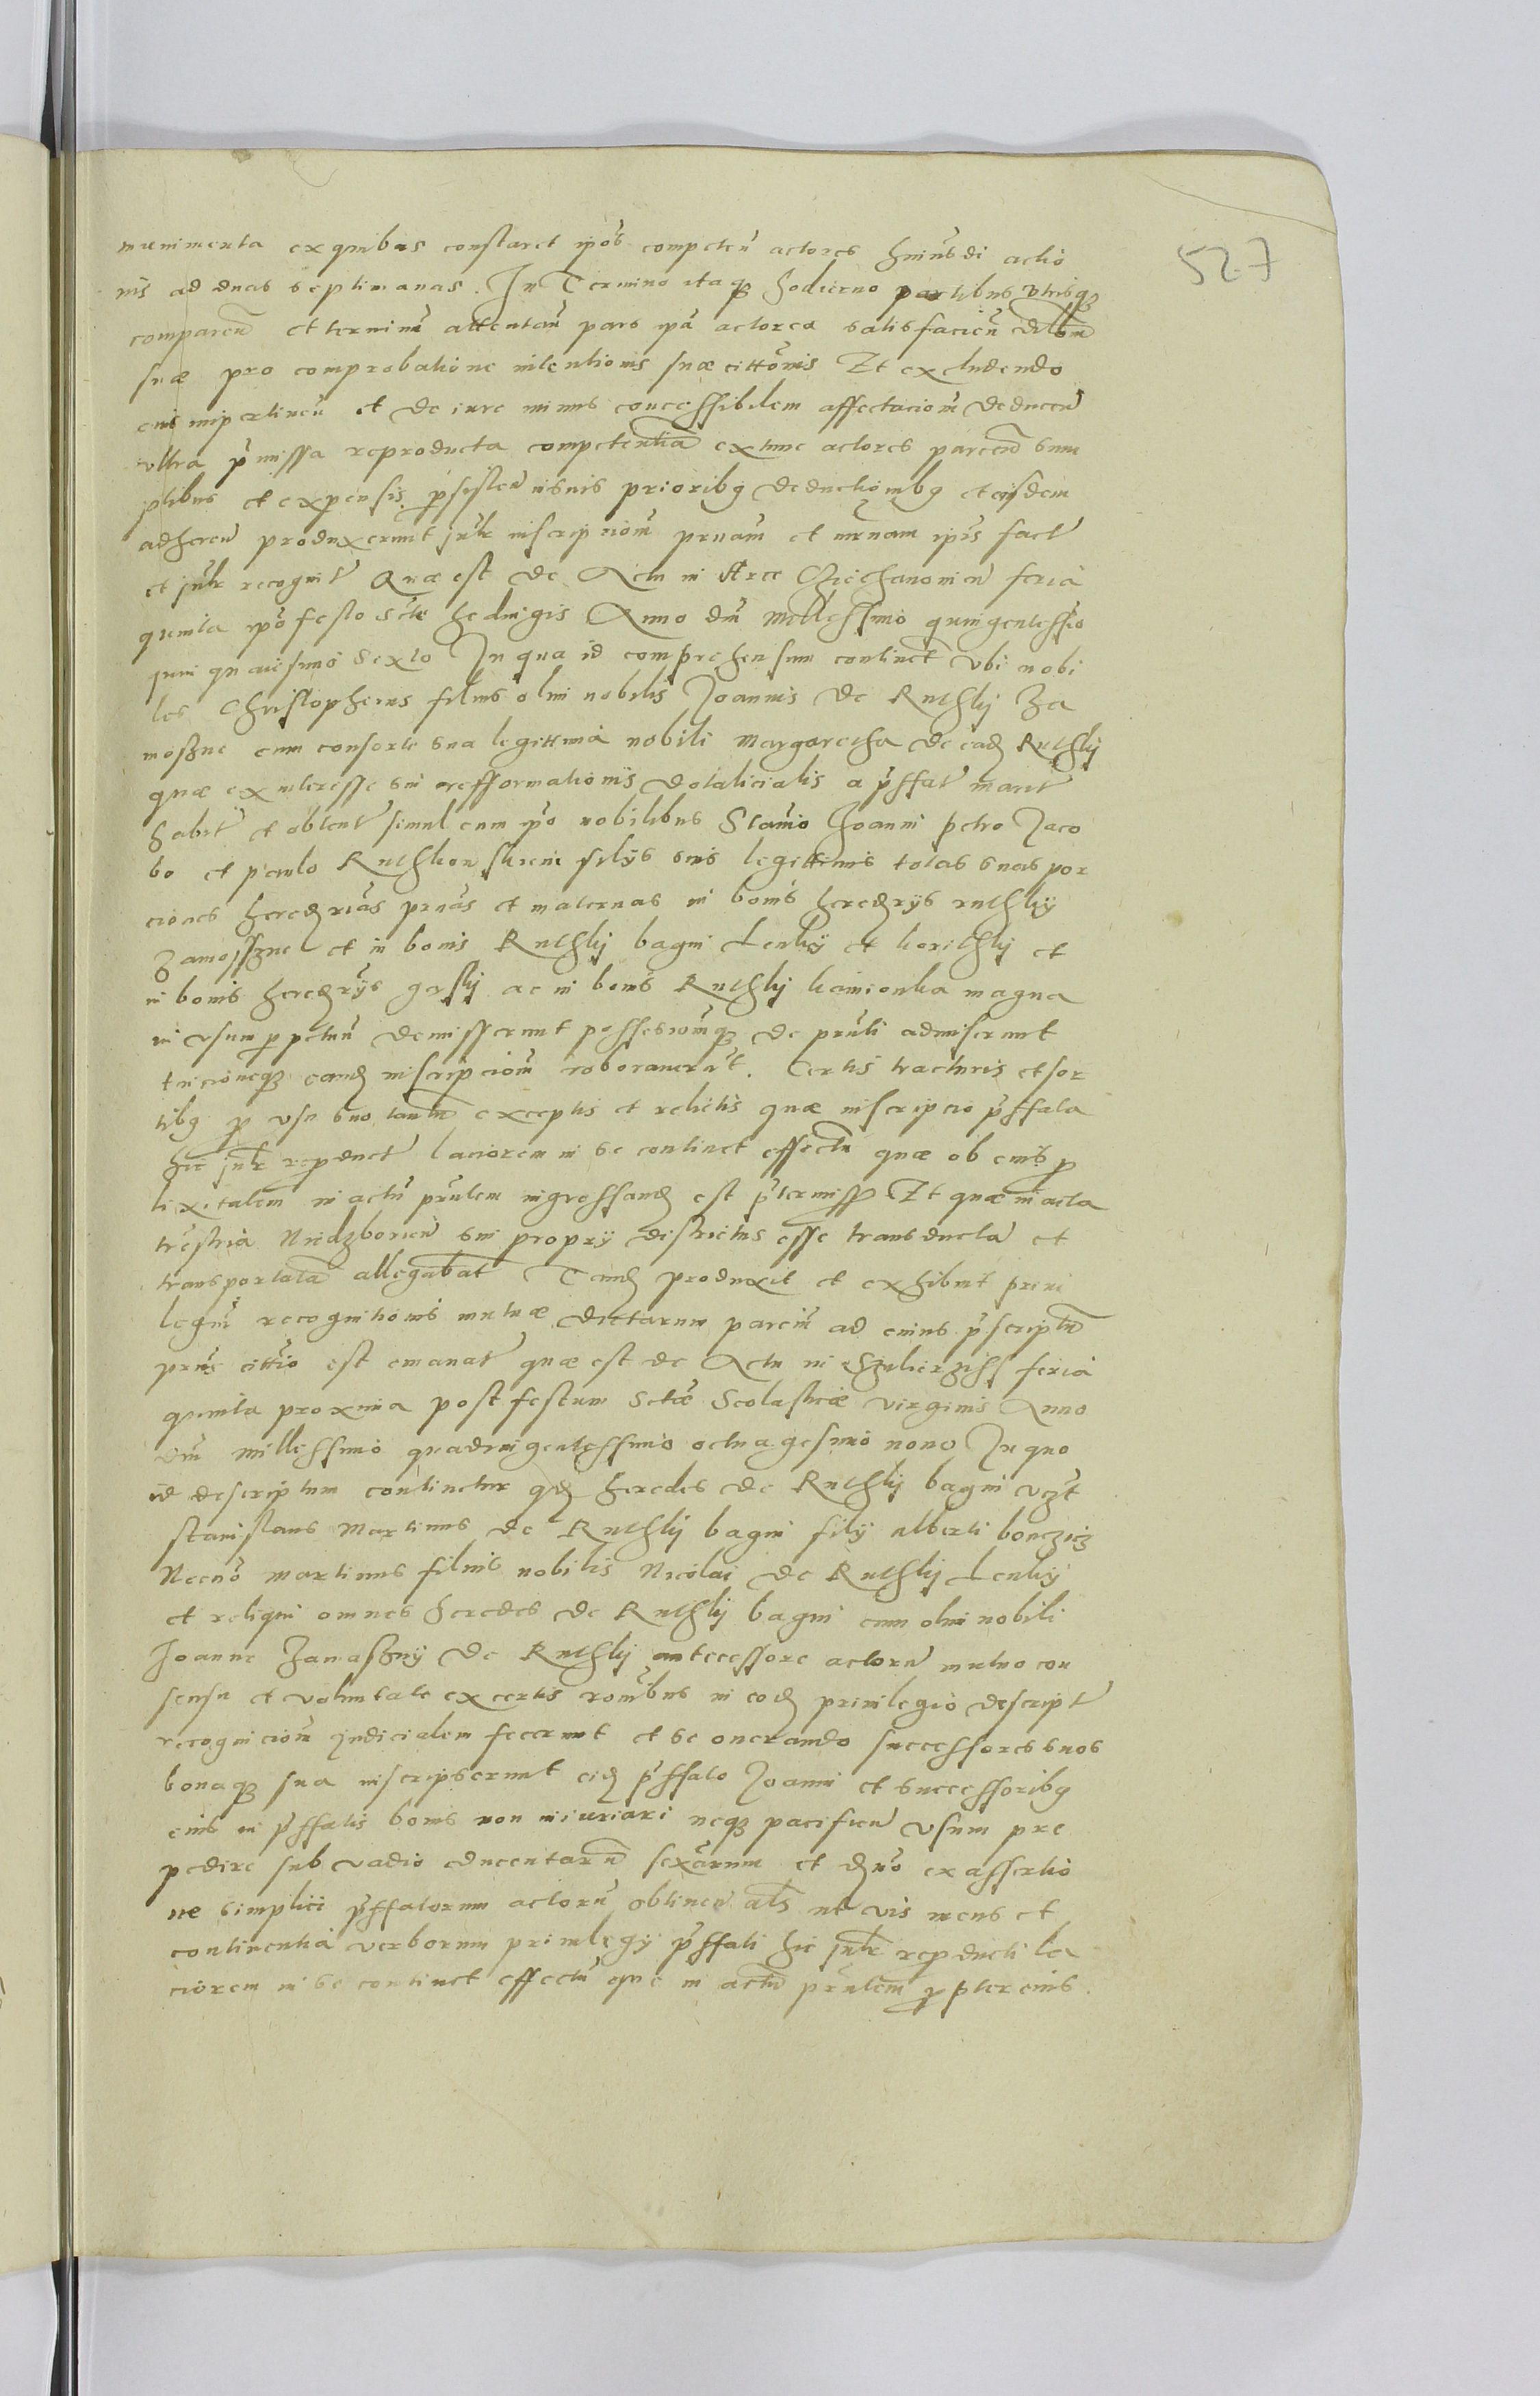 527
munimenta ex quibus constaret ipos competen actores huiusdi actio
nis ad duas septimanas. In Termino itaq hodierno partibus vtrisq
comparen et terminu attentan pars ipa actorea satisfacien
suæ pro comprobatione intentionis suæ cittonis Et excludendo
eius impertinen et de iure minus concessibilem affectaciom deducen
vltra pmissa reproducta competentia extunc actores parcend sum
ptibus et expensis psisten in suis prioribq deductionibq et eisdem
adheren produxerunt judr inscripciom prnam et mrnam ipis fact
et judr recognit Quæ est de Actu in Arce Cziechanovien feria
quinta ipo festo Scte hedvigis Anno dni Millessimo quingentessio
quinquaiesimo Sexto In qua id comprehensum continet vbi nobi
les Christopherus filius olim nobilis Joannis de Ruthky Za
moszne cum consorte sua legittima nobili Margaretha de ead Ruthky
quæ ex interesse sui refformationis dotalicialis a pffat marit
habit et obtent simul cum ipo nobilibus Stanio Joanni petro Jaco
bo et paulo Ruthkowskiemi filijs suis legittimis totas suas por
ciones heredrias prnas et maternas in bonis heredrijs ruthky
Zamosszne et in bonis Ruthky bagni Lenky et korithky et
in bonis heredrijs gosky ac in bonis Ruthky kamionka magna
in vsum ppetuu demisserunt possessiomq de prnti admiserunt
tuicioneq eand inscripciom roboraverut. Certis tracturis et sor
tibq p vsu suo tantu exceptis et relictis quæ inscripcio pffata
hic judr repduct laciorem in se continet effectu quæ ob eius p
lixitatem in actu prntem ingrossand est ptermiss Et quæ in acta
trestria Niedzborien sui proprij districtus esse transducta et
transportata allegabat Tand produxit et exhibuit privi
legiu recognitionis mutuæ dictarum parciu ad cuius pscriptu
prns cittio est emanat quæ est de Actu in feria
quinta proxima post festum Sctæ Scolasticæ virginis Anno
dni millessimo quadringentessimo octuagesimo nono In quo
id descriptum continetur qd heredes de Ruthky bagni vczt
stanislaus Martinus de Ruthky bagni filij alberti bonczicz
Necno Martinus filius nobilis Nicolai de Ruthky Lenky
et reliqui omnes heredes de Ruthky bagni cum olim nobili
Joanne Zamaszny de Ruthky antecessore actoru mutuo con
sensu et voluntate ex certis ronibus in eod privilegio descript
recogniciom judicialem fecerunt et se onerando successores suos
bonaq sua inscripserunt eid pffato Joanni et successoribq
eius in pffatis bonis non iniuriari neq pacificu vsum pre
pedire sub vadio ducentaru sexarum et dno ex assertio
ne simplici pffatorum actoru obtinen als ut vis mens et
continentia verborum privilegij pffati hic judr repducti la
ciorem in se continet effectu que in actu prntem ppter eius.